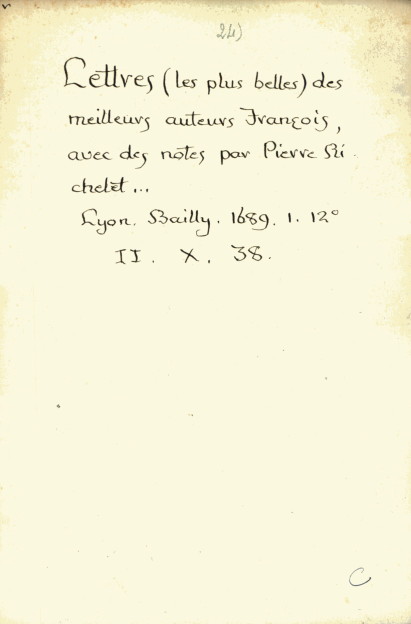 24)
Lettres (les plus belles) des
meilleurs auteurs François,
avec des notes par Pierre Ri
chelet...
Lyon. Bailly. 1689. 1. 12°
II. X. 38.
C